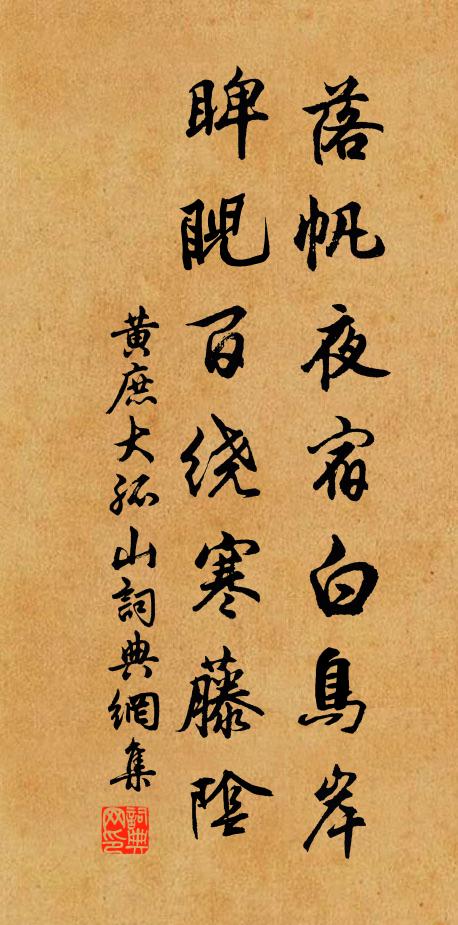 落帆夜宿白鳥岸
睥睨百绕寒藤陰
黄庶大孤山詞典網集
詞典网印